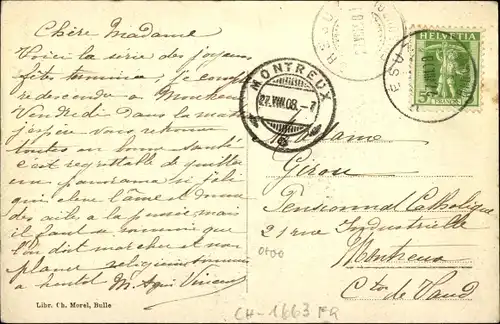 Chère Madame
Voici la série des joyeuses
fêtes terminée, je compte
redescendre à Montreux
Vendredi Dans la matinée
j'espère vous retrouver
toutes en bonne santé
c'est regrettable de quitter
un panorama si joli
qui élève l'âme et donne
des ailes à la pensée mais
il faut se souvenir que
l'on doit marcher et non
planer
à bientôt M.
Libr. Ch. Morel, Bulle
HELVETIA
5
FRANCO
MONTREUX
27.VIII.08.-7
Madame
Girou
Pensionnat Catholique
21 rue Industrielle
Montreux
Cton de Vaud
CH-1663 FR